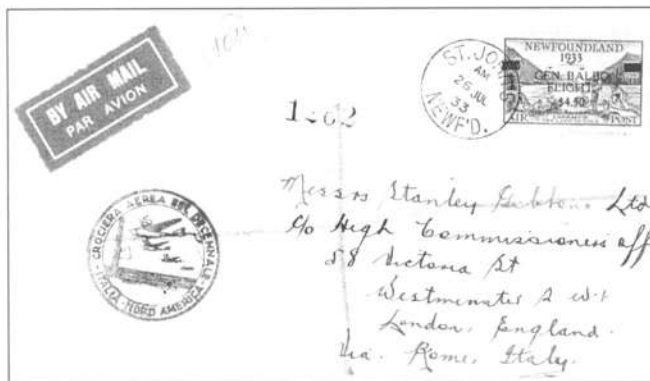 BY AIR MAIL
PAR AVION
ST. JOHN'S
AM
26 JUL
33
NEWF'D.
NEWFOUNDLAND
1933
GEN. BALBO
FLIGHT
$4.50
AIR POST
1262
CROCIERA AEREA DEL DECENNALE
ITALIA - NORD AMERICA
Messrs Stanley Gibbons Ltd
c/o High Commissioners off
58 Victoria St
Westminster S.W.1
London. England.
Via. Rome. Italy.